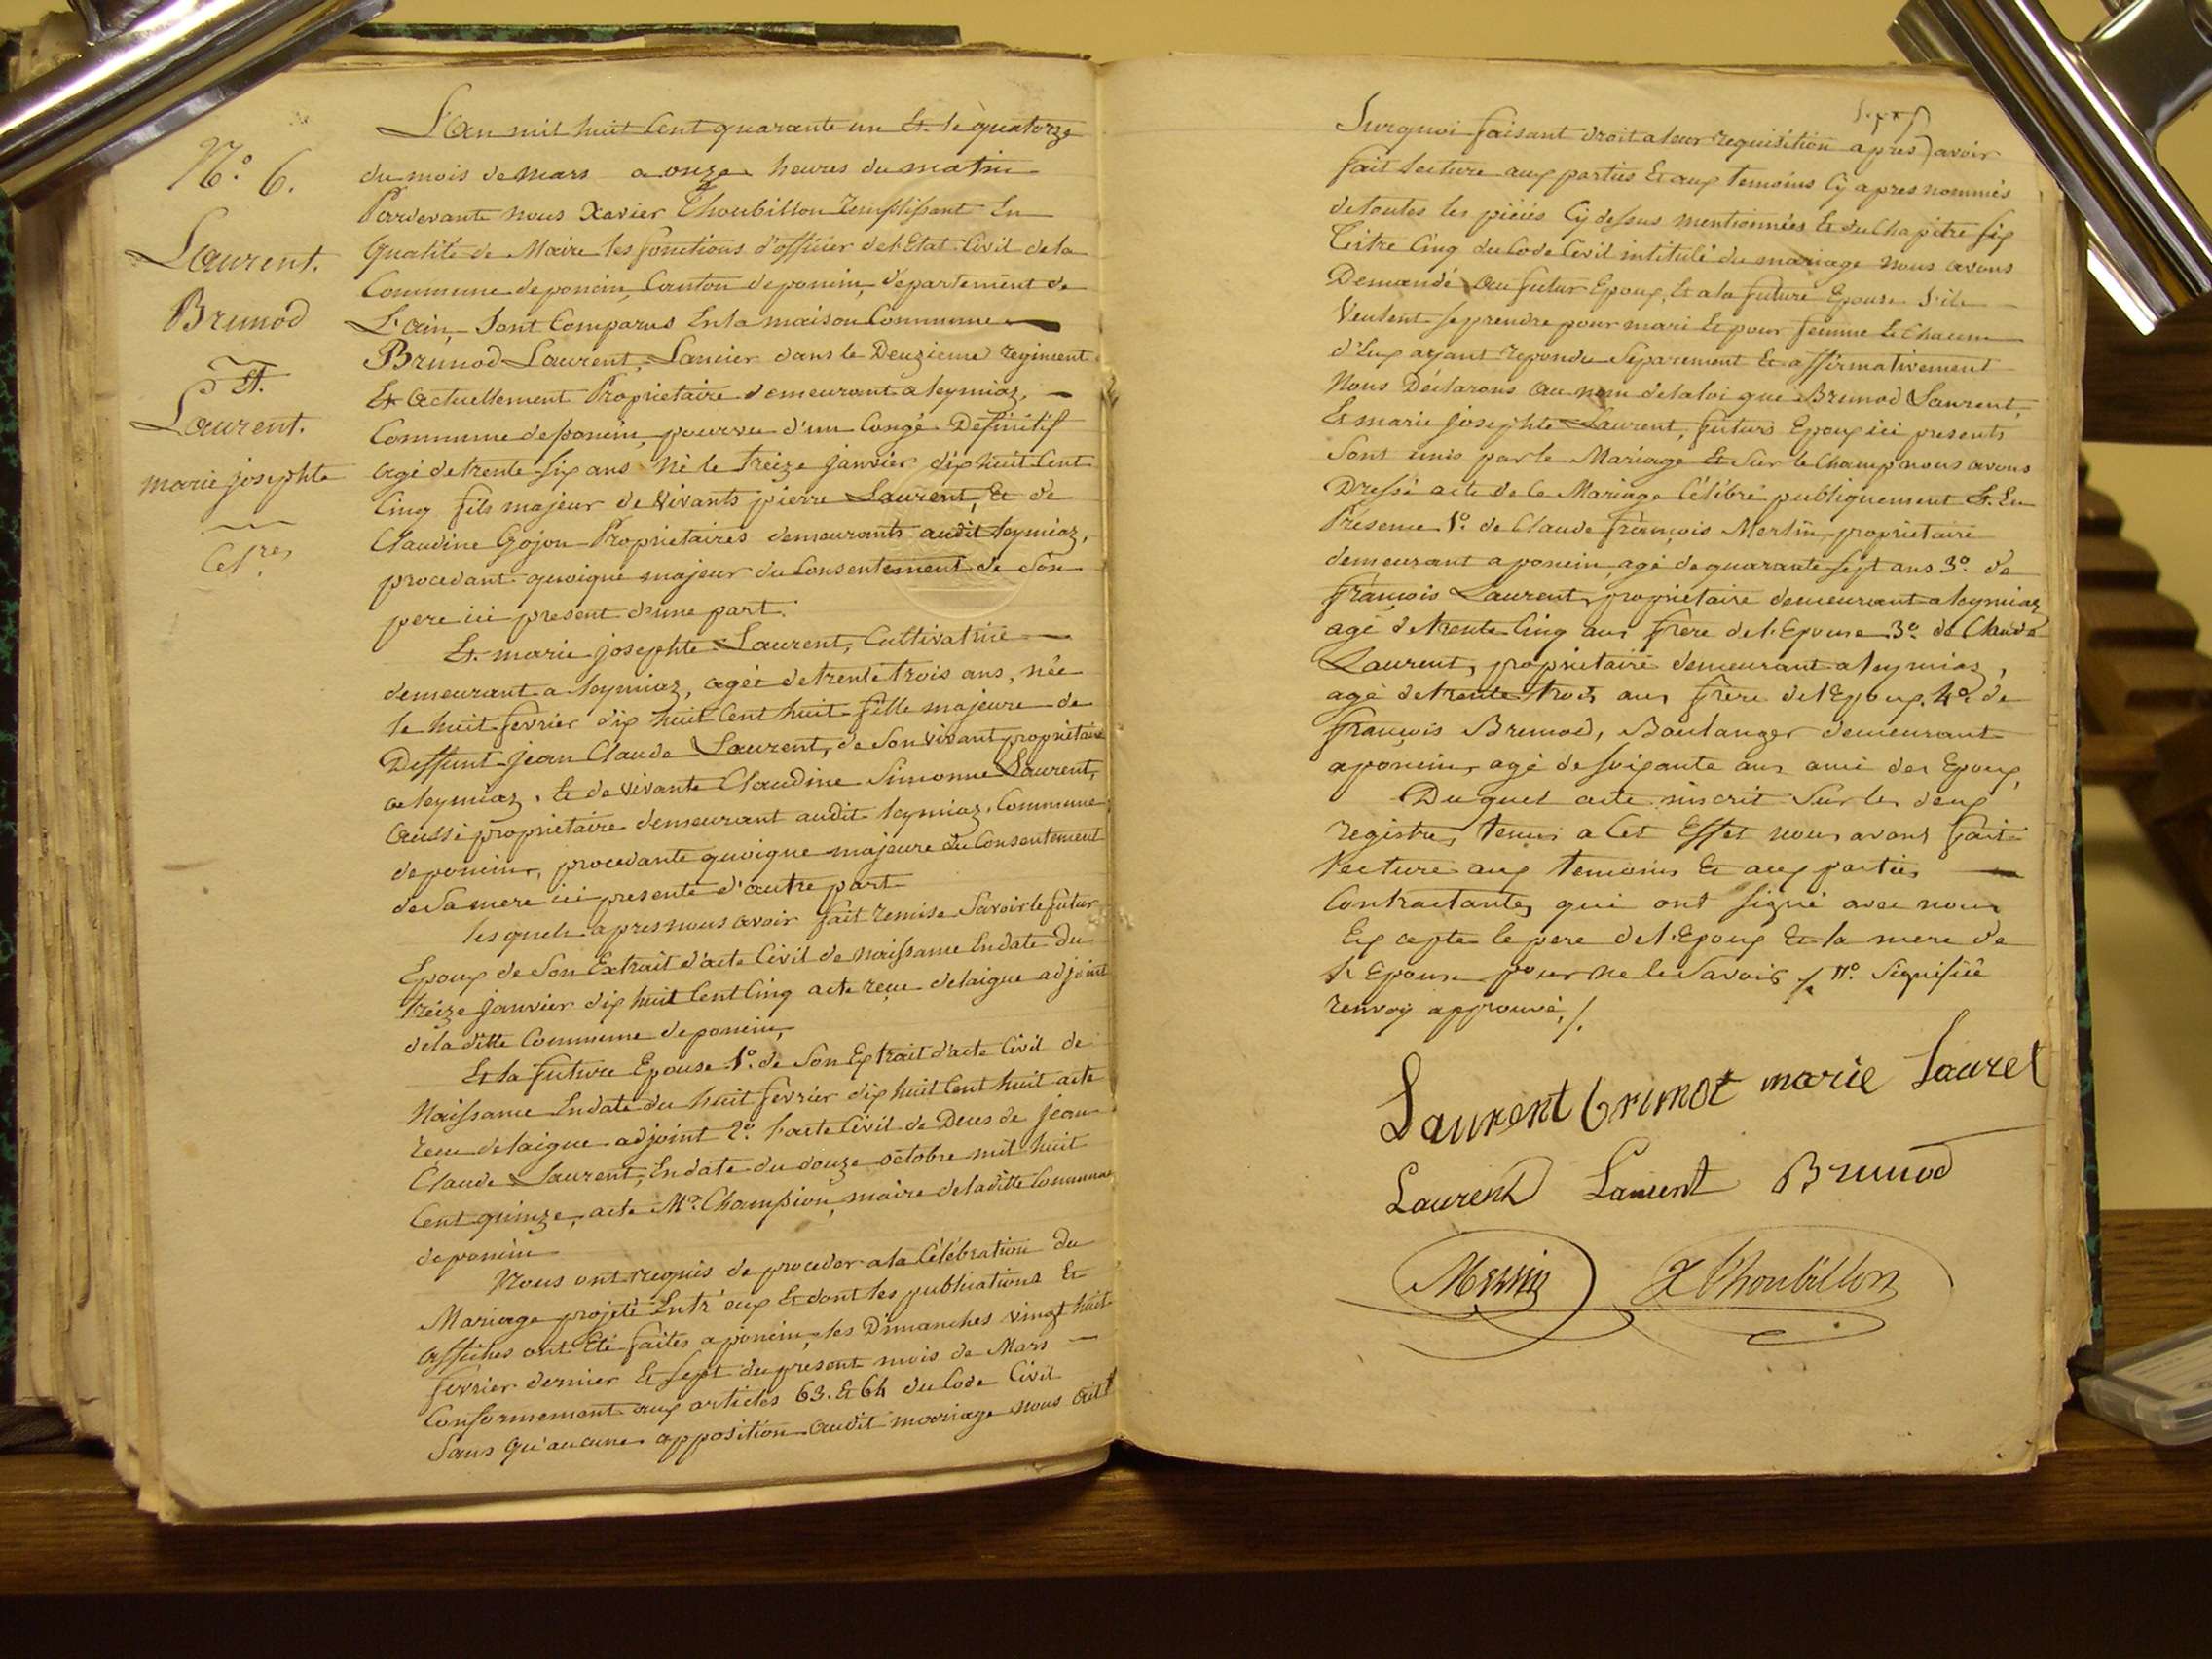 N.° 6.
Laurent.
Brunod
Et.
Laurent.
marie josephte
L'an mil huit Cent quarante un Et. le quatorze
du mois de mars a onze heures du matin
Pardevant nous Xavier Thoubillon Remplissant En
Qualité de Maire les fonctions d'officier de l'Etat Civil de la
Commune de poncin, Canton de poncin, département de
L'ain, Sont Comparus En la maison Commune
Brunod Laurent, Lancier dans le Deuzieme regiment
Et actuellement Proprietaire demeurant a leymiaz,
Commune de poncin, pourvu d'un Congé Définitif
agé de trente six ans né le treize janvier dix huit Cent
Cinq fils majeur de Vivants pierre Laurent, Et de
Claudine Gojon Proprietaires demeurants audit leymiaz,
procedant quoique majeur du Consentement de Son
pere ici present d'une part.
Et. marie josephte Laurent, Cultivatrice
demeurant a leymiaz, agée de trente trois ans, née
le huit fevrier dix huit Cent huit fille majeure de
Deffunt jean Claude Laurent, de Son vivant propriétaire
a leymiaz, Et de vivante Claudine Simonne Laurent,
aussi propriétaire demeurant audit leymiaz. Commune
de poncin, procedante quoique majeure du Consentement
de Sa mere ici presente d'autre part
les quels apres nous avoir fait remise Savoir le futur
Epoux de Son Extrait d'acte Civil de naissance En date du
treize janvier dix huit Cent Cinq acte reçu delaigue adjoint
de la ditte Commune de poncin,
Et la future Epouse 1.° de Son Extrait d'acte Civil de
Naissance En date du huit fevrier dix huit Cent huit acte
reçu delaigue adjoint 2.° l'acte Civil de Deces de jean
Claude Laurent, En date du douze octobre mil huit
Cent quinze, acte Mr. Champion, maire de la ditte Commune
de poncin
Nous ont requis de proceder a la Célébration du
Mariage projeté Entr'eux Et dont les publications Et
affiches ont Eté faites a poncin, les Dimanches vingt huit
fevrier dernier Et Sept du présent mois de Mars
Conformement aux articles 63. Et 64 du Code Civil
Sans qu'aucune opposition audit mariage nous ait
Sur quoi faisant droit a leur requisition apres avoir
fait lecture aux parties Et aux temoins Cy apres nommés
de toutes les pièces Cy dessus mentionnées Et du Chapitre six
Titre Cinq du Code Civil intitulé du mariage nous avons
Demandé au futur Epoux, Et a la future Epouse S'ils
Veulent se prendre pour mari Et pour femme Et Chacun
d'Eux ayant repondu Séparement Et affirmativement
Nous Déclarons au nom de la loi que Brunod Laurent,
Et marie josephte Laurent, futurs Epoux ici presents
Sont unis par le Mariage Et Sur le Champ nous avons
Dressé acte de Ce Mariage Célébré publiquement Et. En
Présence 1.° de Claude françois Merlin propriétaire
demeurant a poncin, agé de quarante sept ans 3.° de
françois Laurent, propriétaire demeurant a leymiaz
agé de trente Cinq ans frere de l'Epouse 3.° de Claude
Laurent, propriétaire demeurant a leymiaz,
agé de trente trois ans frère de l'Epoux, 4.° de
françois Brunod, Boulanger demeurant
a poncin, agé de soixante ans ami des Epoux,
Du quel acte inscrit Sur les deux
registres tenus a Cet Effet nous avons fait
lecture aux temoins Et aux parties
Contractantes qui ont signé avec nous
Excepte le pere de l'Epoux Et la mere de
l'Epouse pour ne le Savoir /. Signifié
renvoy approuvé, /.
Laurent brunot marie Lauret
Laurent Laurent Brunod
Merlin X Thoubillon